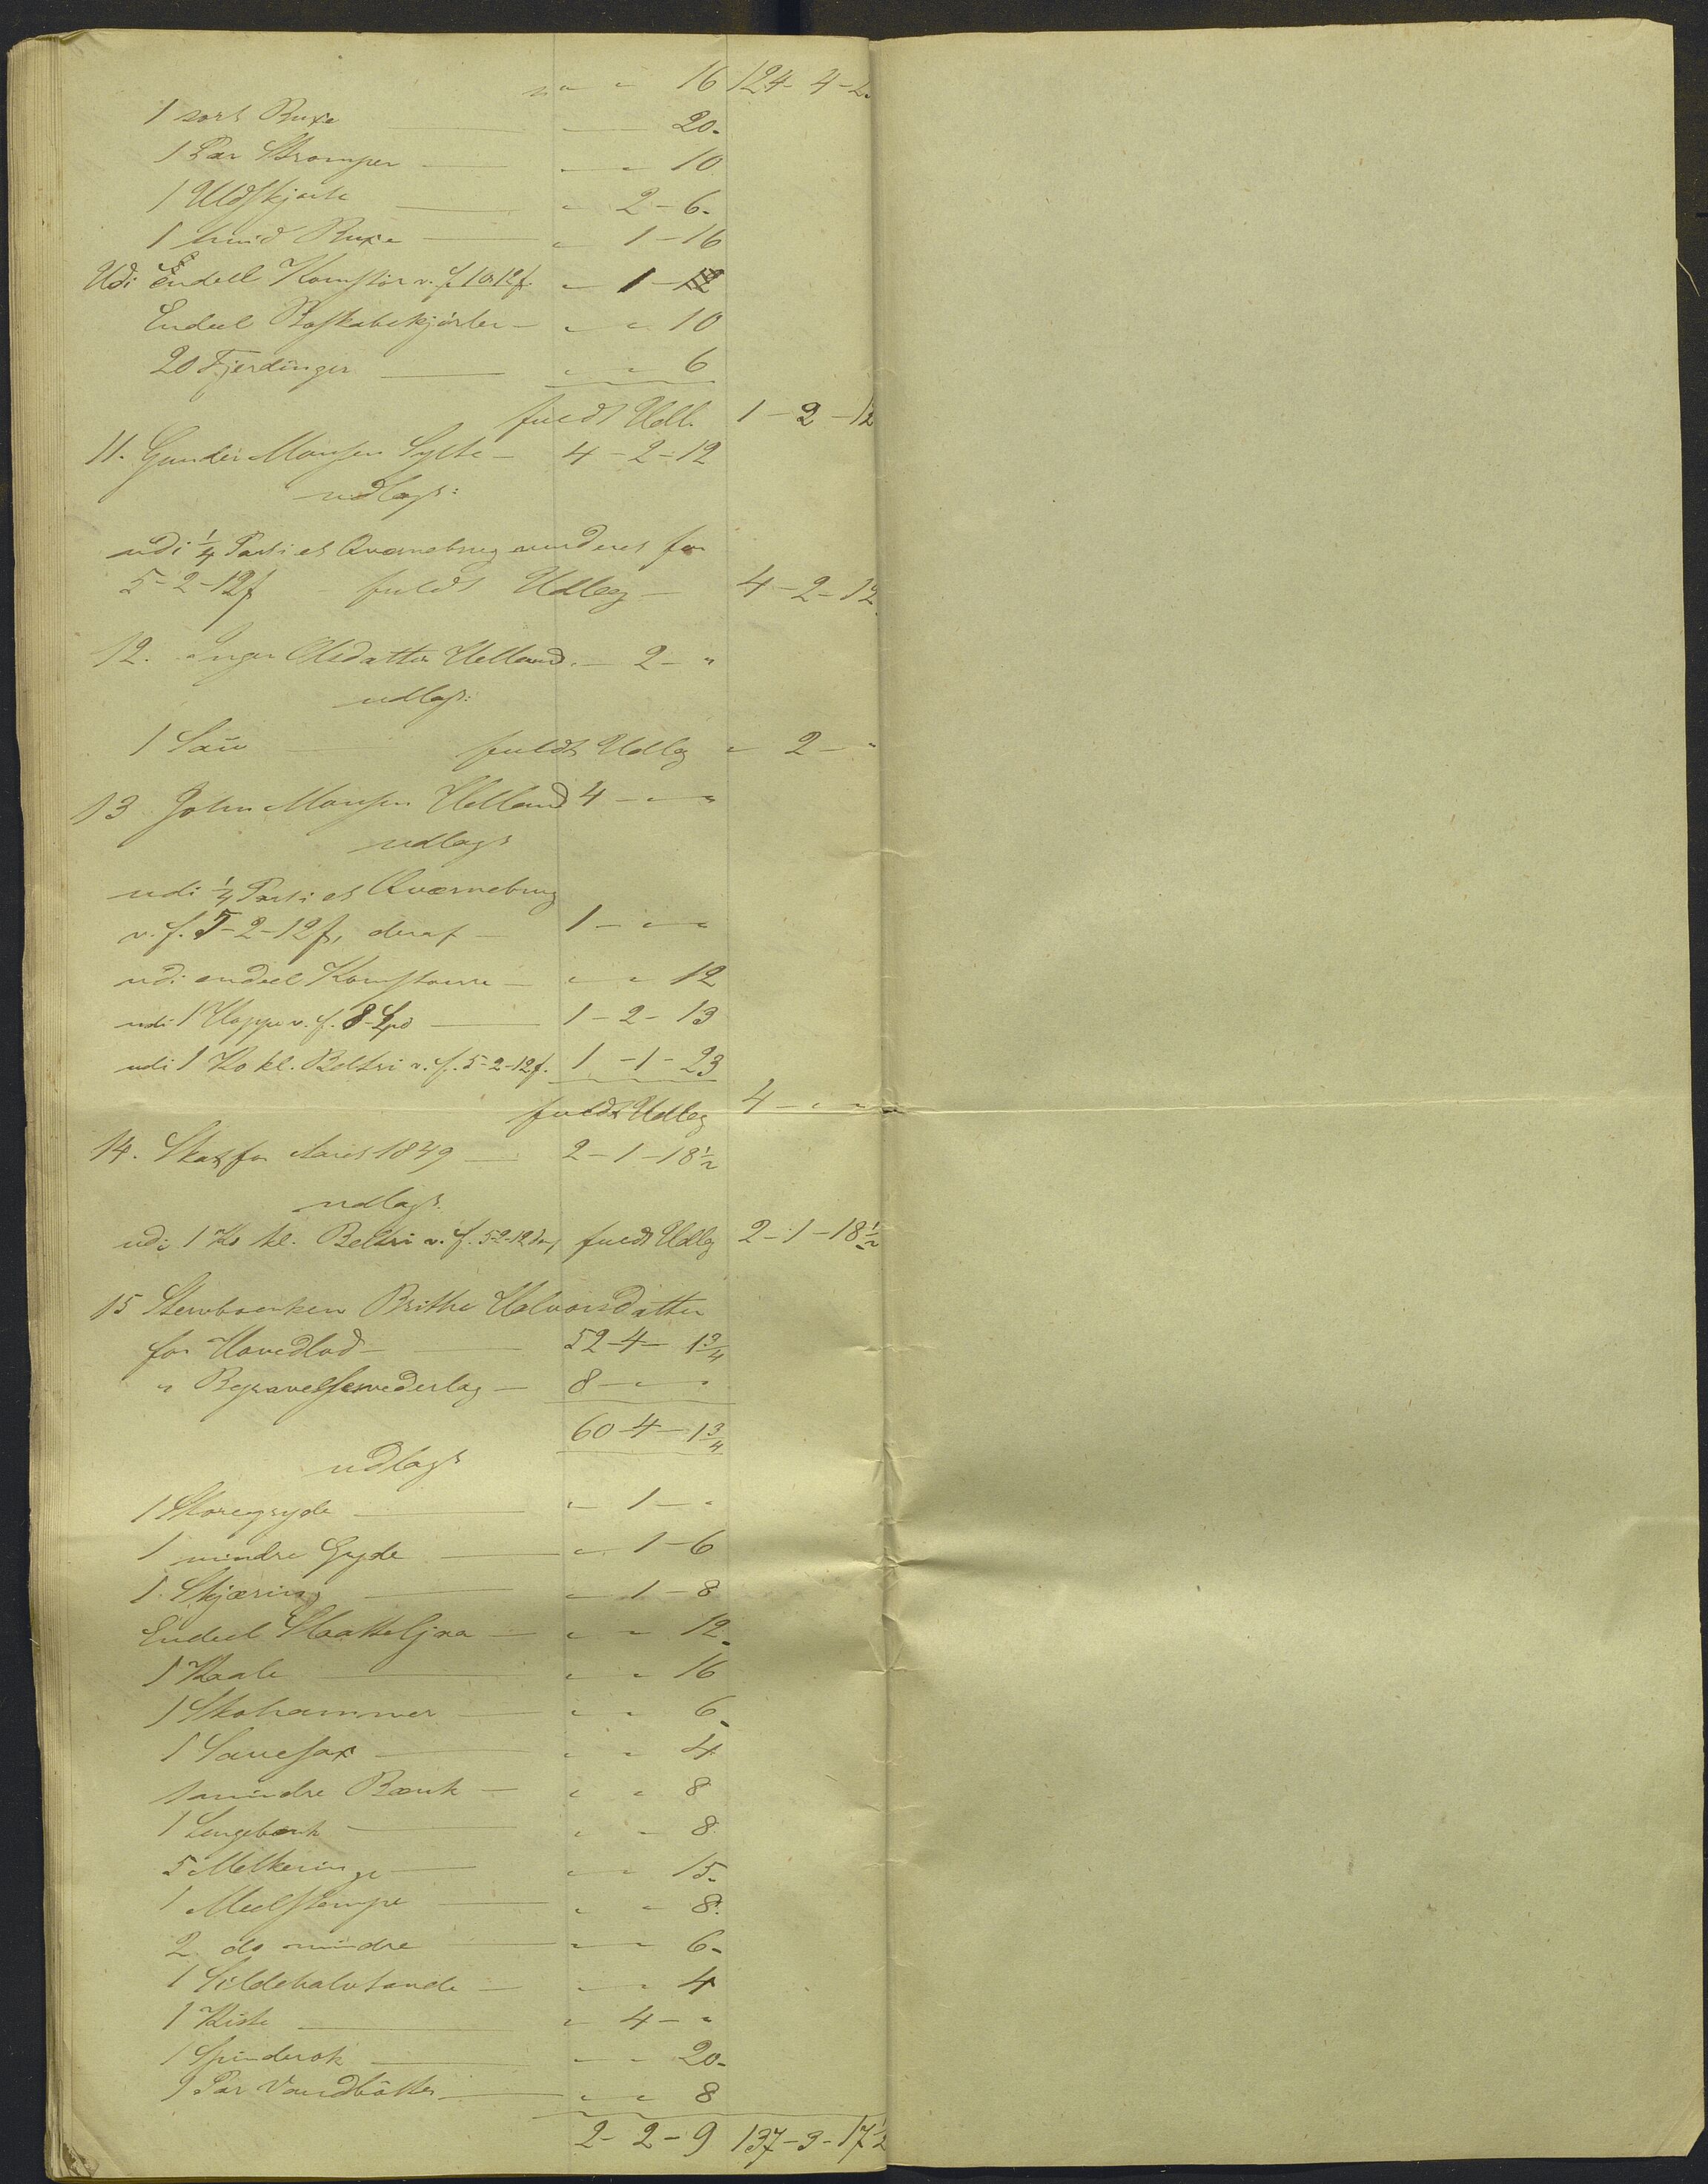 " " 16 124-4-2
1 sort Buxe " " 20-
1 Par Strømper " " 10
1 Uldskjorte " 2-6-
1 hvid Buxe " 1-16
Udi Endeel Kornstør v. f. 1 or 12 f. " 1-12
Endeel Boskabskjørler " " 10
20 Fjerdinger " " 6
fuldt Udl. 1-2-12
11. Gunder Monsen Sylte 4-2-12
udlagt:
udi 1/4 Part i et Qværnebrug vurderet for
5-2-12 f fuldt Udlæg 4-2-12
12. Inger Olsdatter Helland. - 2- "
udlagt:
1 Sau fuldt Udlæg " 2- "
13 John Monsen Helland 4 - " - "
udlagt
udi 1/4 Part i et Qværnebrug
v. f. 5-2-12 f, deraf 1 - " - "
udi endeel Kornstøure " " 12
udi 1 Hoppe v. f. 8 Spd 1-2-13
udi 1 Ko kl. Beltri v. f. 5-2-12 f. 1-1-23
fuldt Udlæg 4 - " - "
14. Skat for Aaret 1849 2-1-18 1/2
udlagt.
udi 1 Ko kl. Beltri v. f. 5-2-12 fuldt Udlæg 2-1-18 1/2
15 Stervboenken Brithe Halvorsdatter
for Hovedlod 52-4-1 3/4
" Begravelsesvederlag 8 - " - "
60-4-1 3/4
udlagt
1 Storegryde " 1 - "
1 mindre Gryde " 1-6
1 Skjæring " 1-8
Endeel Slaatteljaa " " 12-
1 Kaale " " 16
1 Skohammer " " 6-
1 Sauesax " " 4
1 mindre Bænk " " 8
1 Sengebænk " " 8
5 Melkeringe " " 15-
1 Meelstampe " " 8.
2 do mindre " " 6-
1 Sildehalvtønde " " 4
1 Kiste " 4- "
1 Spinderok " " 20-
1 Par Vandbøtter " " 8
2-2-9 137-3-17 1/2